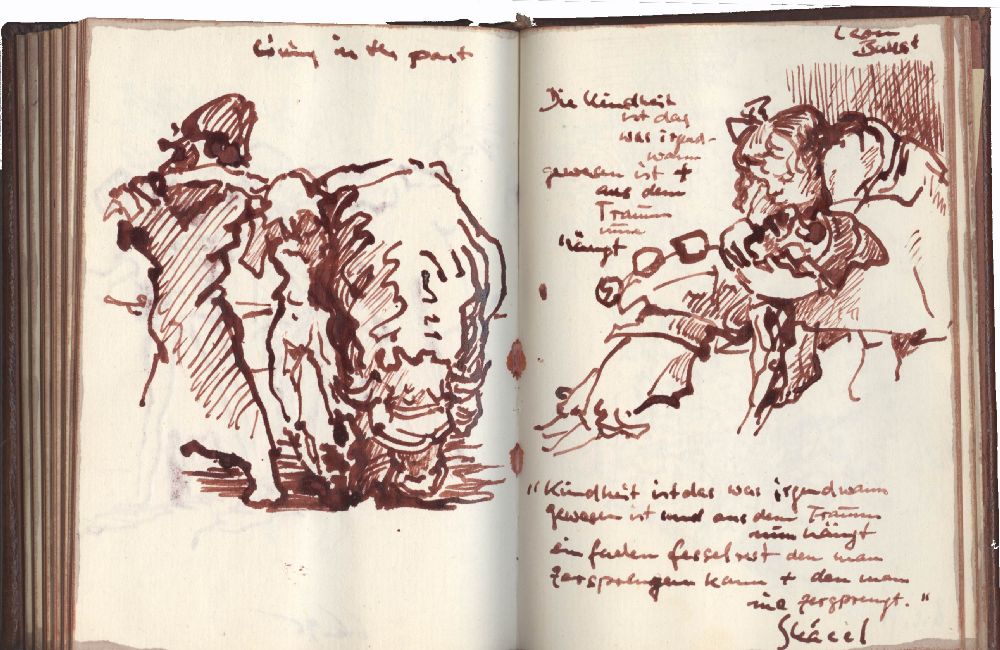 living in the past
Leon
Bakst
Die Kindheit
ist das
was irgend-
wann
gewesen ist +
aus dem
Traum
hängt
"Kindheit ist das was irgendwann
gewesen ist und aus dem Traum
nun hängt
ein faden fesselrest den man
zersprengen kann + den man
nie zersprengt."
Skácel